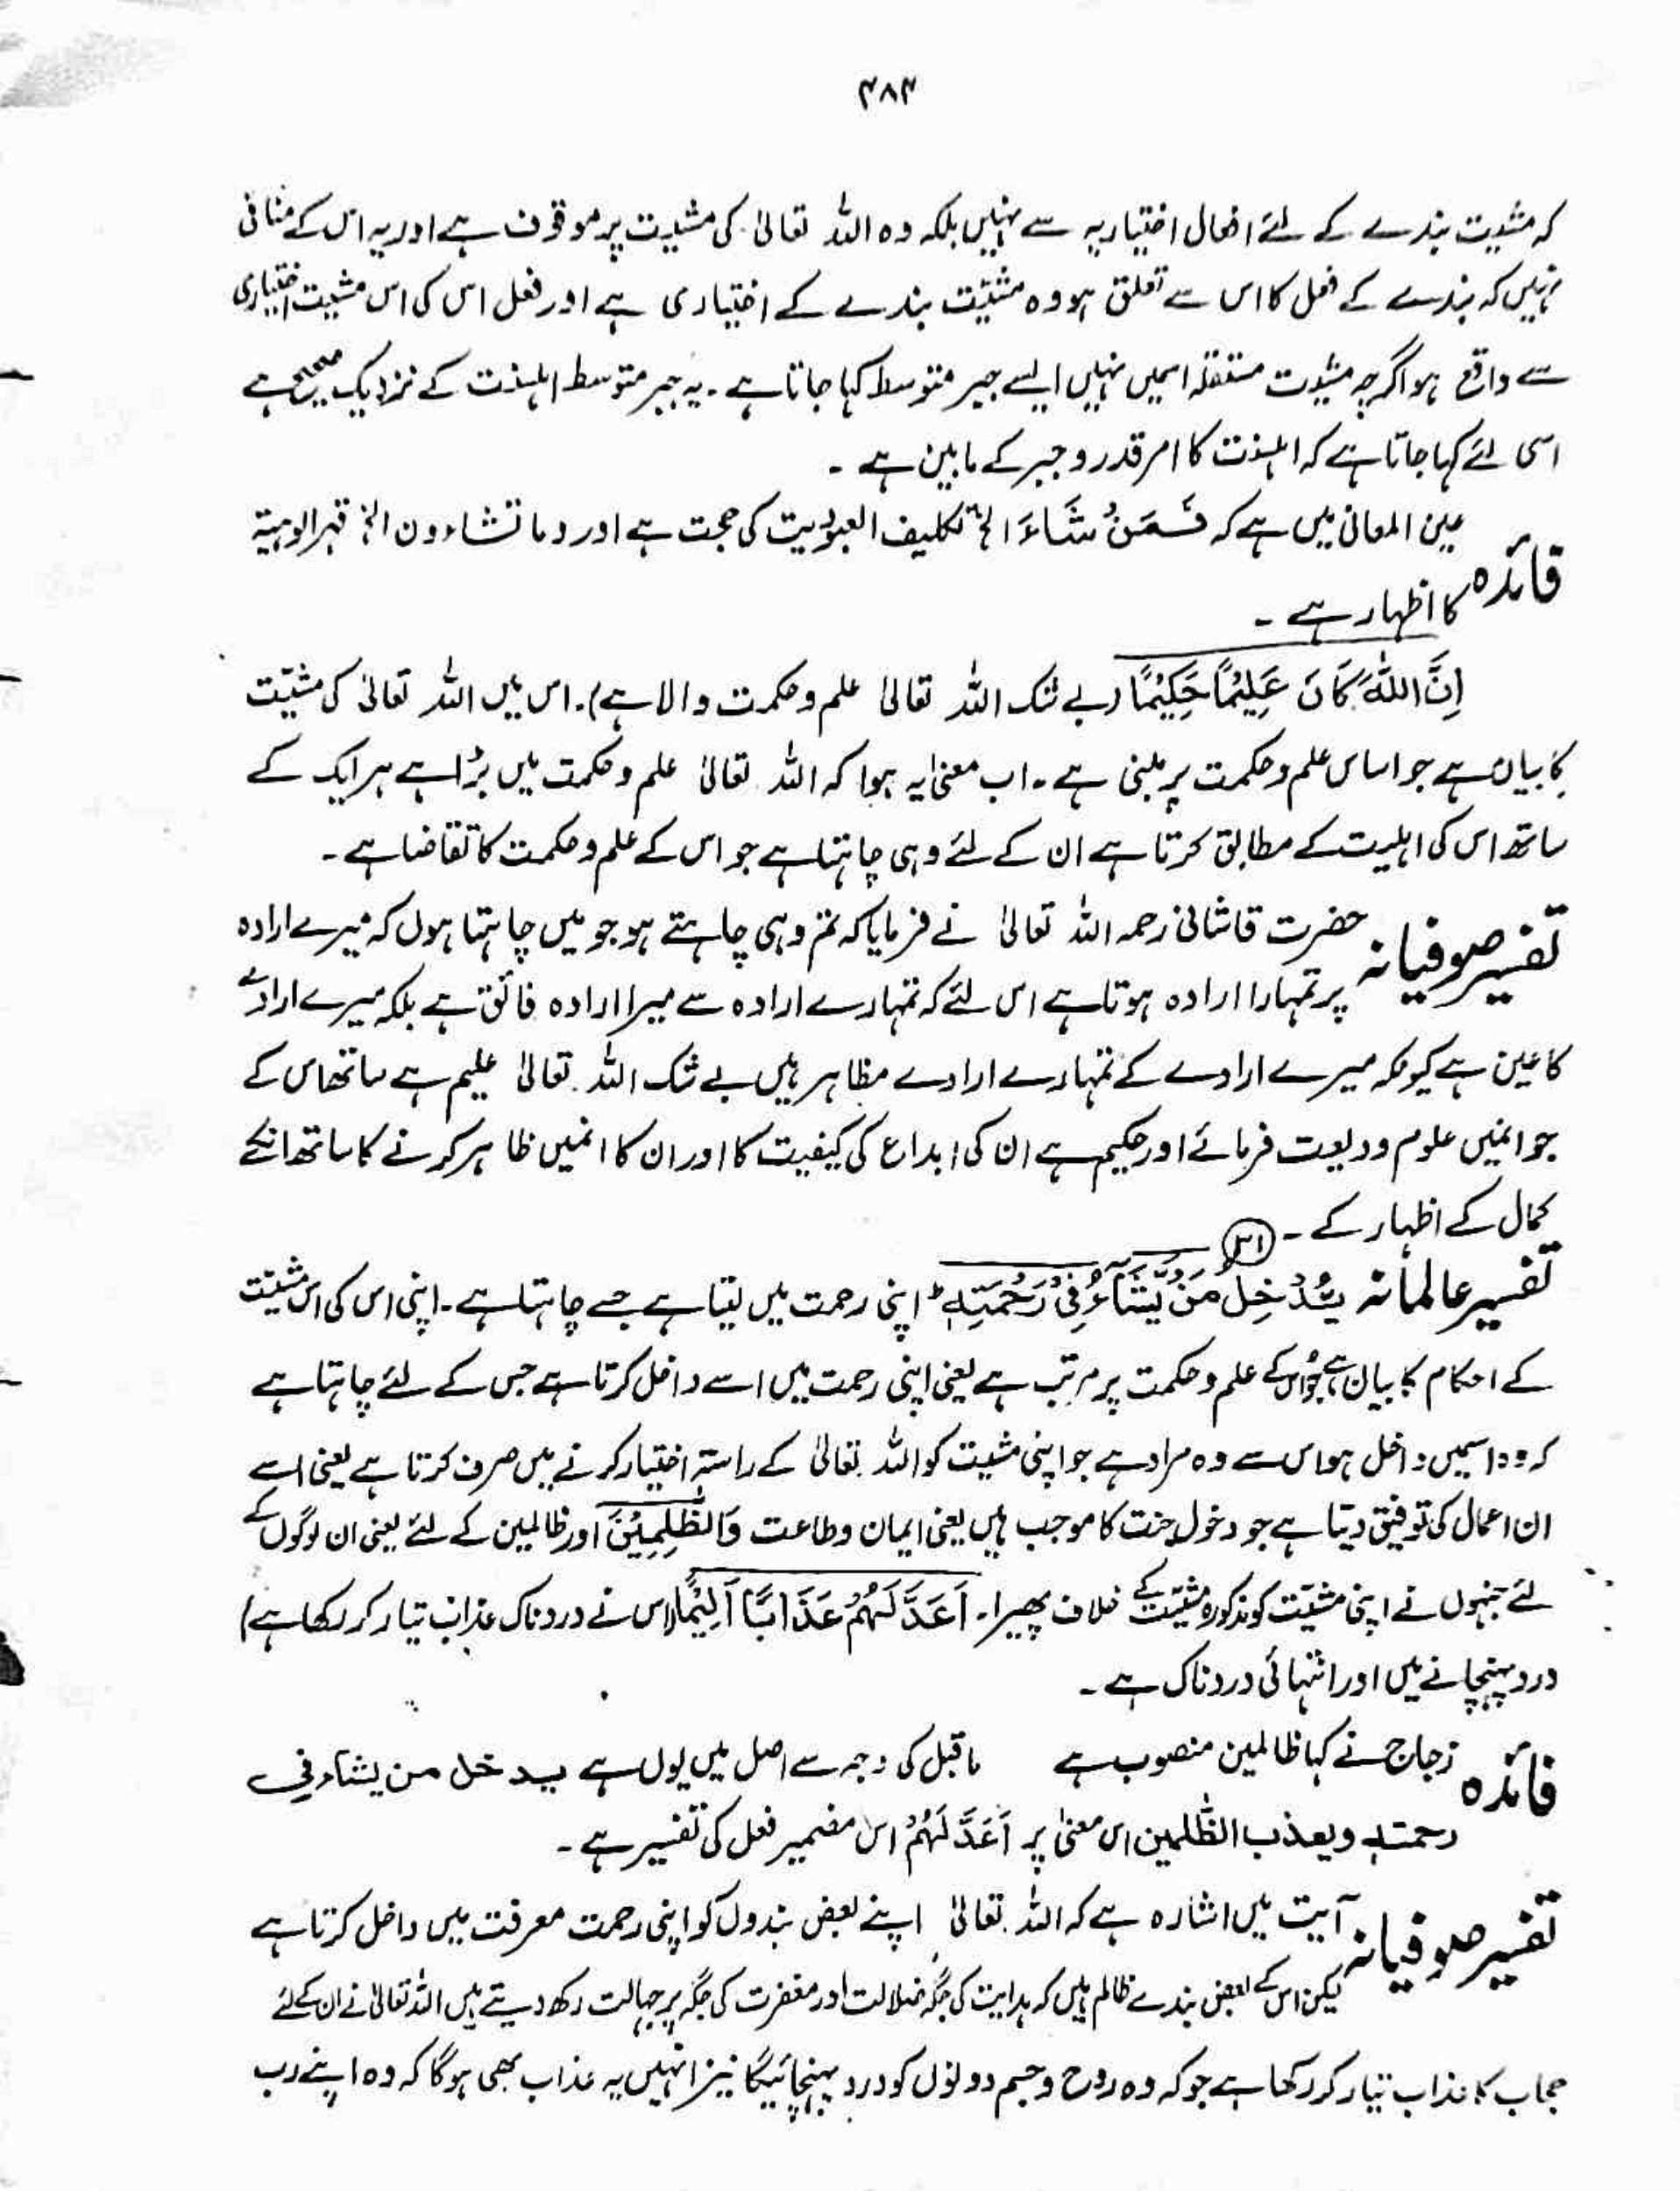 ۳۸۳
کہ مشیت بندے کے لئے افعال اختیاریہ سے نہیں بلکہ وہ اللہ تعالیٰ کی مشیت پر موقوف ہے اور یہ اس کے منافی
نہیں کہ بندے کے فعل کا اس سے تعلق ہو وہ مشیّت بندے کے اختیاری ہے اور فعل اس کی اس مشیت اختیاری
سے واقع ہو اگرچہ مشیت مستقلہ اسمیں نہیں ایسے جبر متوسط کہا جاتا ہے ۔ یہ جبر متوسط اہلسنت کے نزدیک صحیح ہے
اسی لئے کہا جاتا ہے کہ اہلسنت کا امر قدر و جبر کے مابین ہے ۔
فائدہ عین المعانی میں ہے کہ فَمَنْ شَاءَ الخ تکلیف العبودیت کی حجت ہے اور وما تشاءون الخ قہر الوہیۃ
کا اظہار ہے ۔
اِنَّ اللّٰہَ کَانَ عَلِیْمًا حَکِیْمًا (بے شک اللہ تعالیٰ علم و حکمت والا ہے)۔ اس میں اللہ تعالیٰ کی مشیّت
کا بیان ہے جو اساس علم و حکمت پر مبنی ہے ۔ اب معنیٰ یہ ہوا کہ اللہ تعالیٰ علم و حکمت میں بڑا ہے ہر ایک کے
ساتھ اس کی اہلیت کے مطابق کرتا ہے ان کے لئے وہی چاہتا ہے جو اس کے علم و حکمت کا تقاضا ہے ۔
تفسیر صوفیانہ حضرت قاشانی رحمہ اللہ تعالیٰ نے فرمایا کہ تم وہی چاہتے ہو جو میں چاہتا ہوں کہ میرے ارادہ
پر تمہارا ارادہ ہوتا ہے اس لئے کہ تمہارے ارادہ سے میرا ارادہ فائق ہے بلکہ میرے ارادے
کا عین ہے کیونکہ میرے ارادے کے تمہارے ارادے مظاہر ہیں بے شک اللہ تعالیٰ علیم ہے ساتھ اس کے
جو انہیں علوم ودیعت فرمائے اور حکیم ہے ان کی ابداع کی کیفیت کا اور ان کا انہیں ظاہر کرنے کا ساتھ انکے
کمال کے اظہار کے ۔ ۳۱
تفسیر عالمانہ یُّدْخِلُ مَنْ یَّشَآءُ فِیْ رَحْمَتِہٖ ؕ اپنی رحمت میں لیتا ہے جسے چاہتا ہے ۔ اپنی اس کی اس مشیّت
کے احکام کا بیان ہے جو اس کے علم و حکمت پر مرتب ہے یعنی اپنی رحمت میں اسے داخل کرتا ہے جس کے لئے چاہتا ہے
کہ وہ اسمیں داخل ہو اس سے وہ مراد ہے جو اپنی مشیت کو اللہ تعالیٰ کے راستہ اختیار کرنے میں صرف کرتا ہے یعنی اسے
ان اعمال کی توفیق دیتا ہے جو دخول جنت کا موجب ہیں یعنی ایمان وطاعت وَالظّٰلِمِیْنَ اور ظالمین کے لئے یعنی ان لوگوں کے
لئے جنہوں نے اپنی مشیّت کو مذکورہ مشیّت کے خلاف پھیرا ۔ اَعَدَّ لَہُمْ عَذَابًا اَلِیْمًا (اس نے دردناک عذاب تیار کر رکھا ہے)
درد پہنچانے میں اور انتہائی دردناک ہے ۔
فائدہ زجاج نے کہا ظالمین منصوب ہے ماقبل کی وجہ سے اصل میں یوں ہے یدخل من یشاء فی
رحمتہ ویعذب الظّٰلمین اس معنیٰ پر اَعَدَّ لَہُمْ اس مضمیر فعل کی تفسیر ہے ۔
تفسیر صوفیانہ آیت میں اشارہ ہے کہ اللہ تعالیٰ اپنے بعض بندوں کو اپنی رحمت معرفت میں داخل کرتا ہے
لیکن اس کے بعض بندے ظالم ہیں کہ ہدایت کی جگہ ضلالت اور مغفرت کی جگہ پر جہالت رکھ دیتے ہیں اللہ تعالیٰ نے ان کے لئے
حجاب کا عذاب تیار کر رکھا ہے جو کہ وہ روح و جسم دونوں کو درد پہنچائیگا نیز انہیں یہ عذاب بھی ہوگا کہ وہ اپنے رب